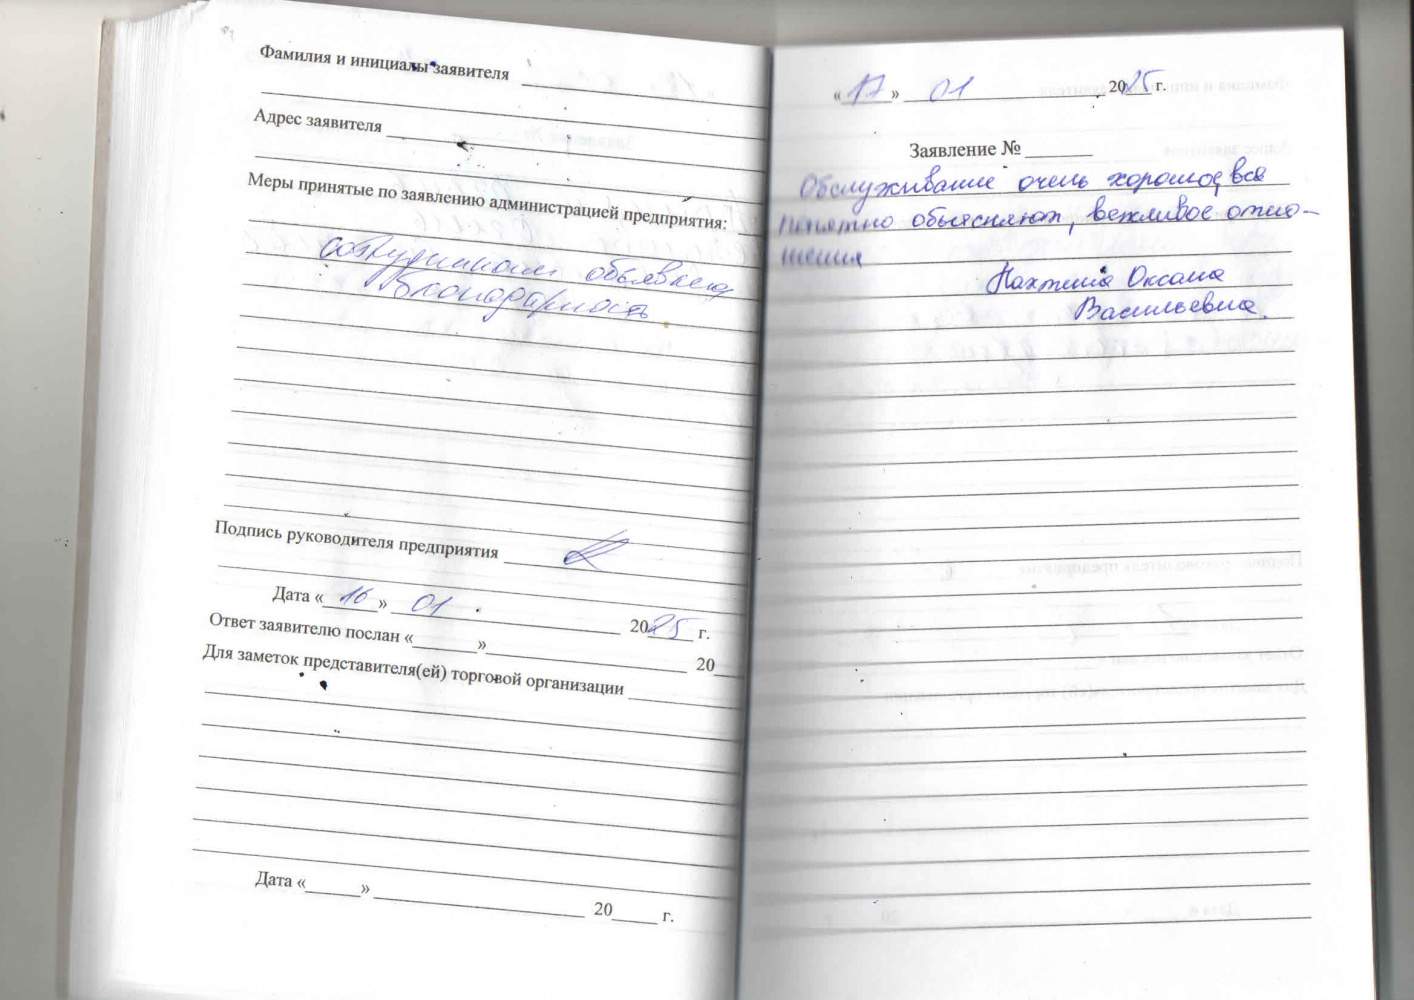 Фамилия и инициалы заявителя
Адрес заявителя
Меры принятые по заявлению администрацией предприятия:
сотрудникам объявлена
благодарность
Подпись руководителя предприятия
Дата «16» 01 2025 г.
Ответ заявителю послан «____» 20
Для заметок представителя(ей) торговой организации
Дата «____» 20____ г.
«17» 01 2025 г.
Заявление №
Обслуживание очень хорошое, всё
понятно объясняют, вежливое отно-
шения
Оксана
Васильевна.